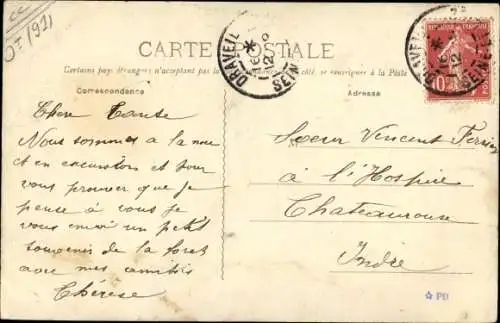 CARTE POSTALE
Certains pays étrangers n'acceptant pas la côté, se renseigner à la Poste
Correspondance
Adresse
DRAVEIL
SEINE
DRAVEIL
SEINE
10
Chère Tante
Nous sommes à la
et en excursion et pour
vous prouver que je
pense à vous je
vous envoi un petit
souvenir de la foret
avec mes amitiés
Thérèse
Sœur Vincent
à l'Hospice
Chateauroux
Indre
PD